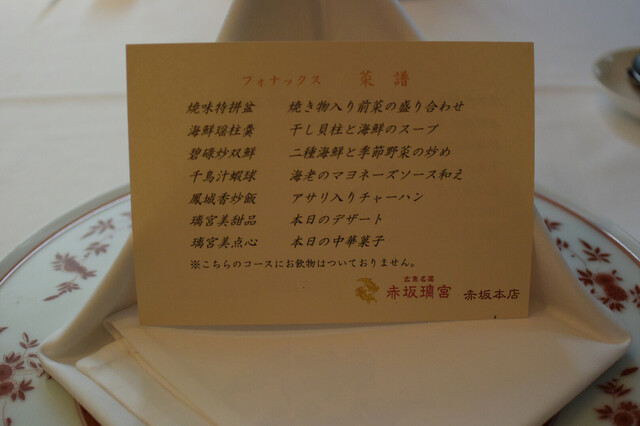 フォナックス 菜譜
燒味特拼盆 焼き物入り前菜の盛り合わせ
海鮮瑶柱羹 干し貝柱と海鮮のスープ
碧碌炒双鮮 二種海鮮と季節野菜の炒め
千鳥汁蝦球 海老のマヨネーズソース和え
鳳城香炒飯 アサリ入りチャーハン
璃宮美甜品 本日のデザート
璃宮美点心 本日の中華菓子
※こちらのコースにお飲物はついておりません。
広東名菜
赤坂璃宮 赤坂本店